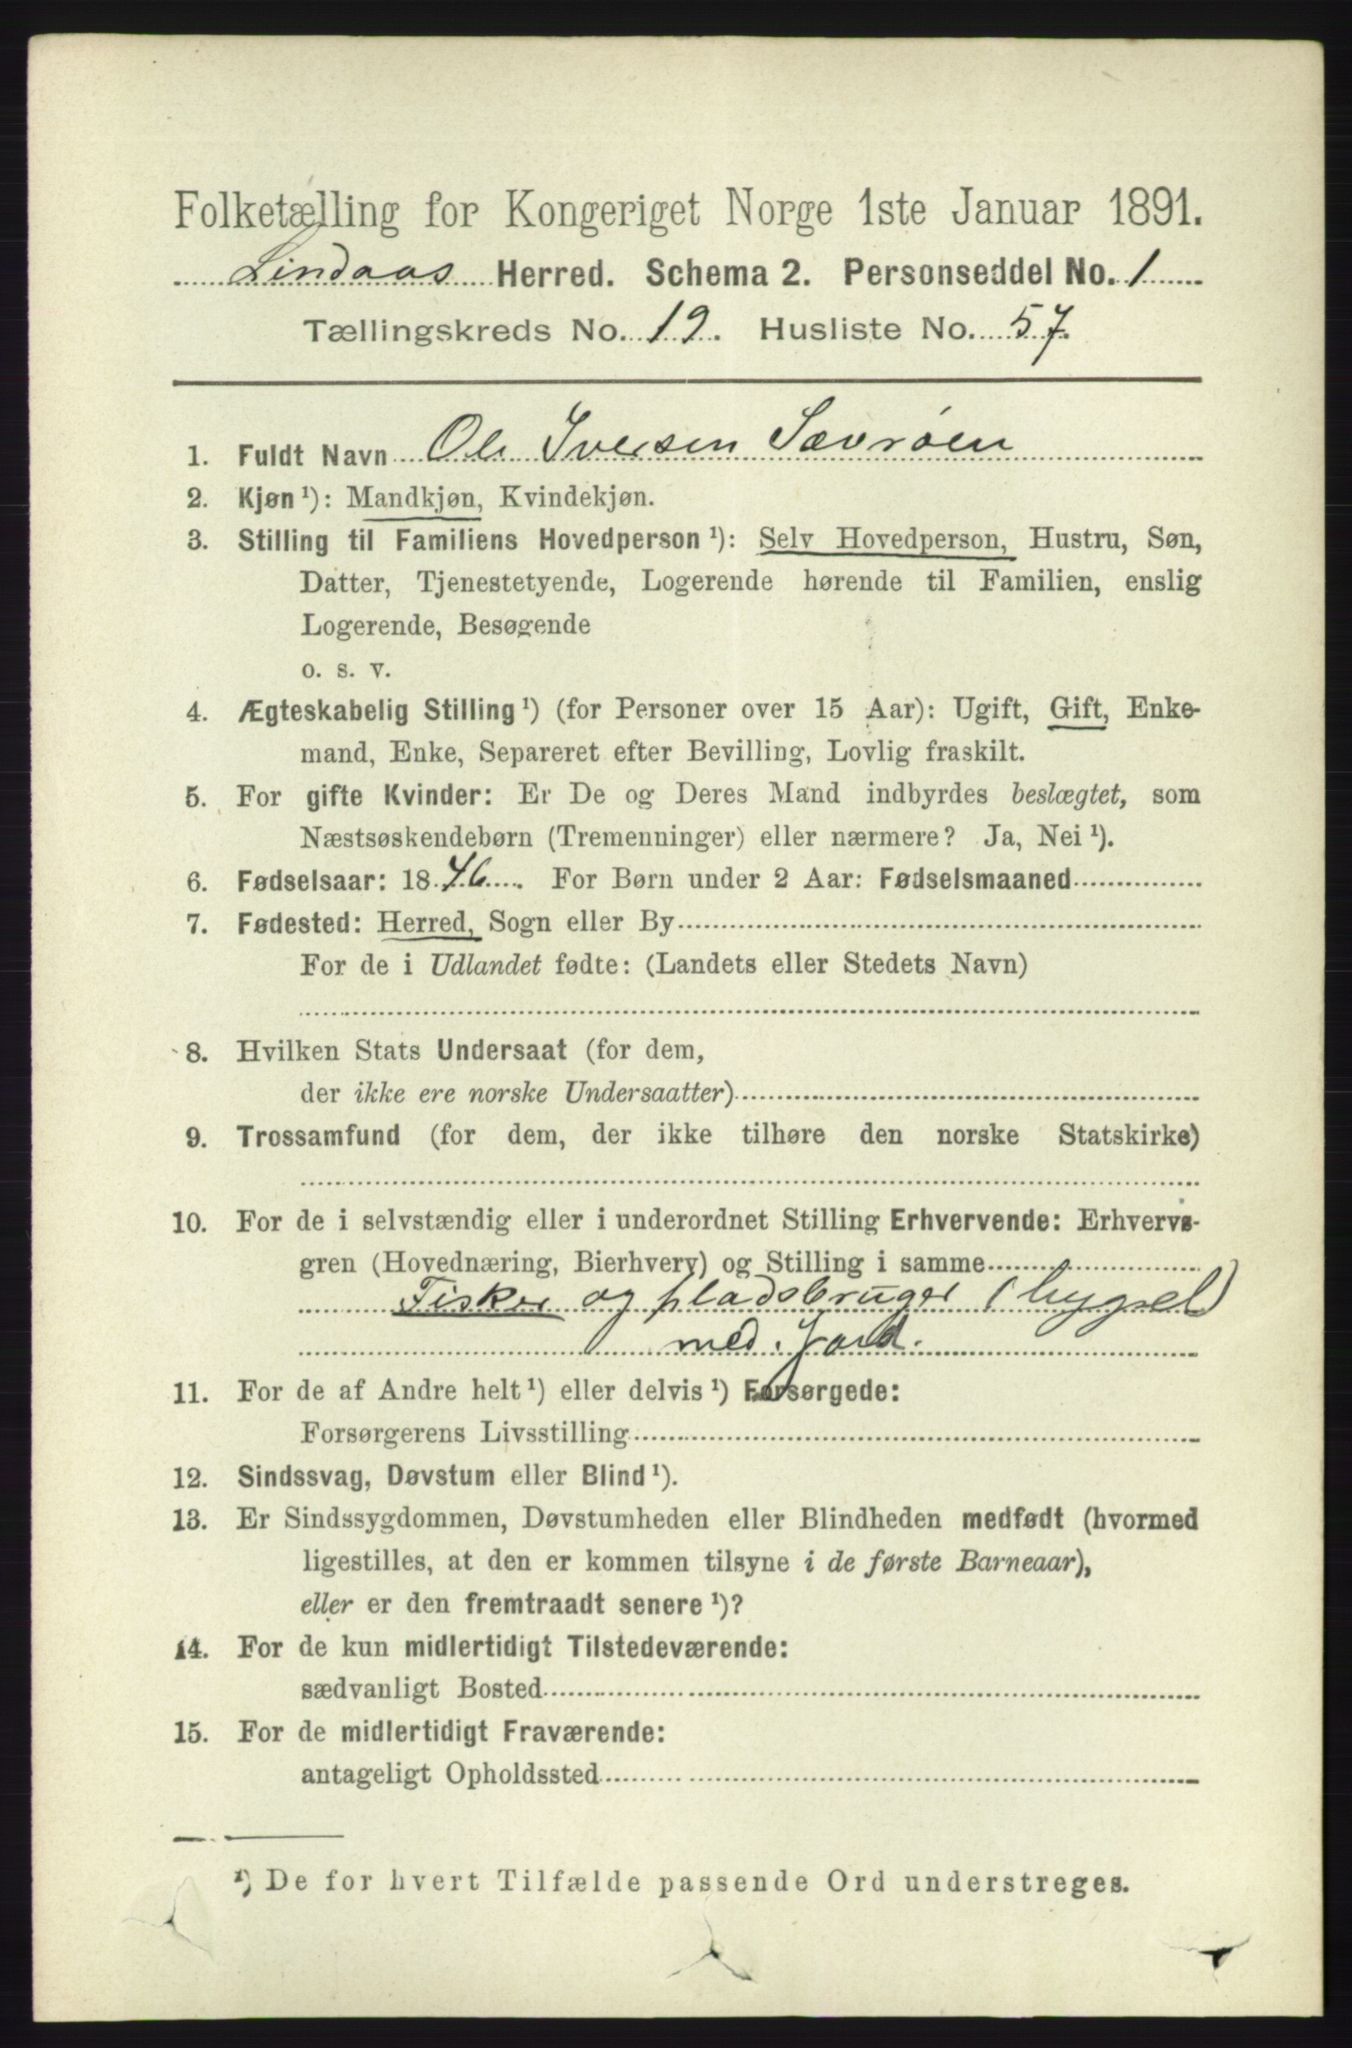 Folketælling for Kongeriget Norge 1ste Januar 1891.
Lindaas Herred. Schema 2. Personseddel No. 1
Tællingskreds No. 19. Husliste No. 57.
1. Fuldt Navn Ole Iversen Sævrøen
2. Kjøn ¹): Mandkjøn, Kvindekjøn.
3. Stilling til Familiens Hovedperson ¹): Selv Hovedperson, Hustru, Søn,
Datter, Tjenestetyende, Logerende hørende til Familien, enslig
Logerende, Besøgende
o. s. v.
4. Ægteskabelig Stilling ¹) (for Personer over 15 Aar): Ugift, Gift, Enke-
mand, Enke, Separeret efter Bevilling, Lovlig fraskilt.
5. For gifte Kvinder: Er De og Deres Mand indbyrdes beslægtet, som
Næstsøskendebørn (Tremenninger) eller nærmere? Ja, Nei ¹).
6. Fødselsaar: 1846. For Børn under 2 Aar: Fødselsmaaned
7. Fødested: Herred, Sogn eller By
For de i Udlandet fødte: (Landets eller Stedets Navn)
8. Hvilken Stats Undersaat (for dem,
der ikke ere norske Undersaatter)
9. Trossamfund (for dem, der ikke tilhøre den norske Statskirke)
10. For de i selvstændig eller i underordnet Stilling Erhvervende: Erhvervs-
gren (Hovednæring, Bierhverv) og Stilling i samme
Fisker og pladsbruger (bygsel)
med Jord.
11. For de af Andre helt ¹) eller delvis ¹) Forsørgede:
Forsørgerens Livsstilling
12. Sindssvag, Døvstum eller Blind ¹).
13. Er Sindssygdommen, Døvstumheden eller Blindheden medfødt (hvormed
ligestilles, at den er kommen tilsyne i de første Barneaar),
eller er den fremtraadt senere ¹)?
14. For de kun midlertidigt Tilstedeværende:
sædvanligt Bosted
15. For de midlertidigt Fraværende:
antageligt Opholdssted
¹) De for hvert Tilfælde passende Ord understreges.